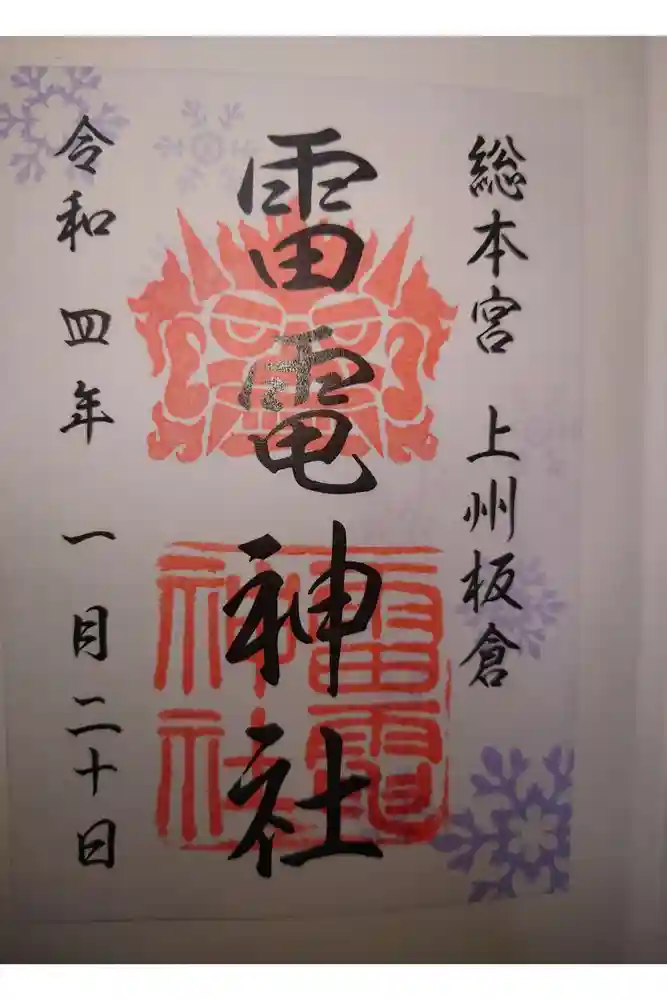 総本宮 上州板倉
雷電神社
雷電
神社
令和四年 一月二十日